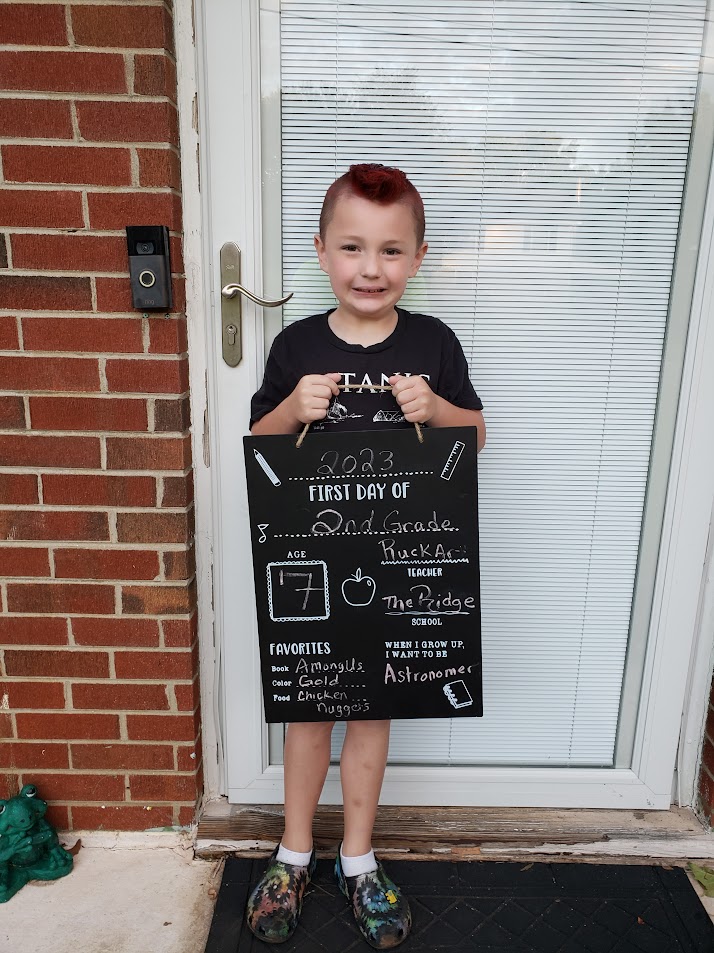 ring
TANIC
2023
FIRST DAY OF
2nd Grade
RuckAr
TEACHER
AGE
7
The Ridge
SCHOOL
FAVORITES
Book AmongUs
Color Gold
Food Chicken
Nuggets
WHEN I GROW UP,
I WANT TO BE
Astronomer